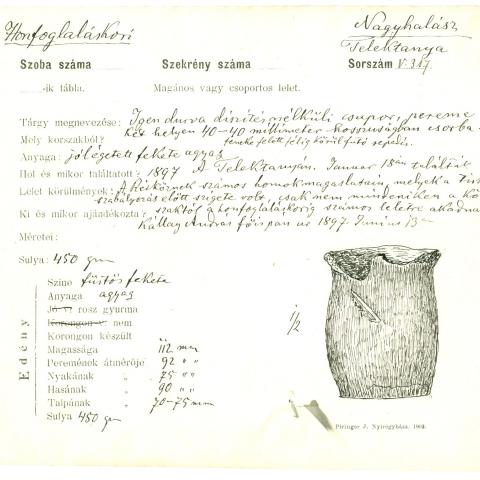 Honfoglaláskori
Nagyhalász
Telektanya
Szoba száma
Szekrény száma
Sorszám V. 317.
-ik tábla.
Magános vagy csoportos lelet.
Tárgy megnevezése: Igen durva díszítésnélküli csupor, pereme
két helyen 40-40 milliméter hosszúságban csorba.
Mely korszakból? feneke felett félig körülfutó repedés.
Anyaga: jólégetett fekete agyag
Hol és mikor találtatott? 1897 A Telektanyán. Januar 18án találtát
Lelet körülmények: A Réskörnek számos homokmagaslatain, melyek a Tisza
szabályozás előtt szigete volt, csak nem mindeniken a kő
Ki és mikor ajándékozta: szaktól a honfoglaláskorig számos leletre akadna
Kállay András főispan úr 1897 Junius 13án
Méretei:
Sulya: 450 gm
Edény
Szine füstös fekete
Anyaga agyag
Jó v. rosz gyurma
Korongon v. nem
Korongon készült
Magassága 112 mm
Peremének átmérője 92 " "
Nyakának " 75 " "
Hasának " 90 " "
Talpának " 70-75 mm
Sulya 450 gm
1/2
Piringer J. Nyiregyháza. 1903.